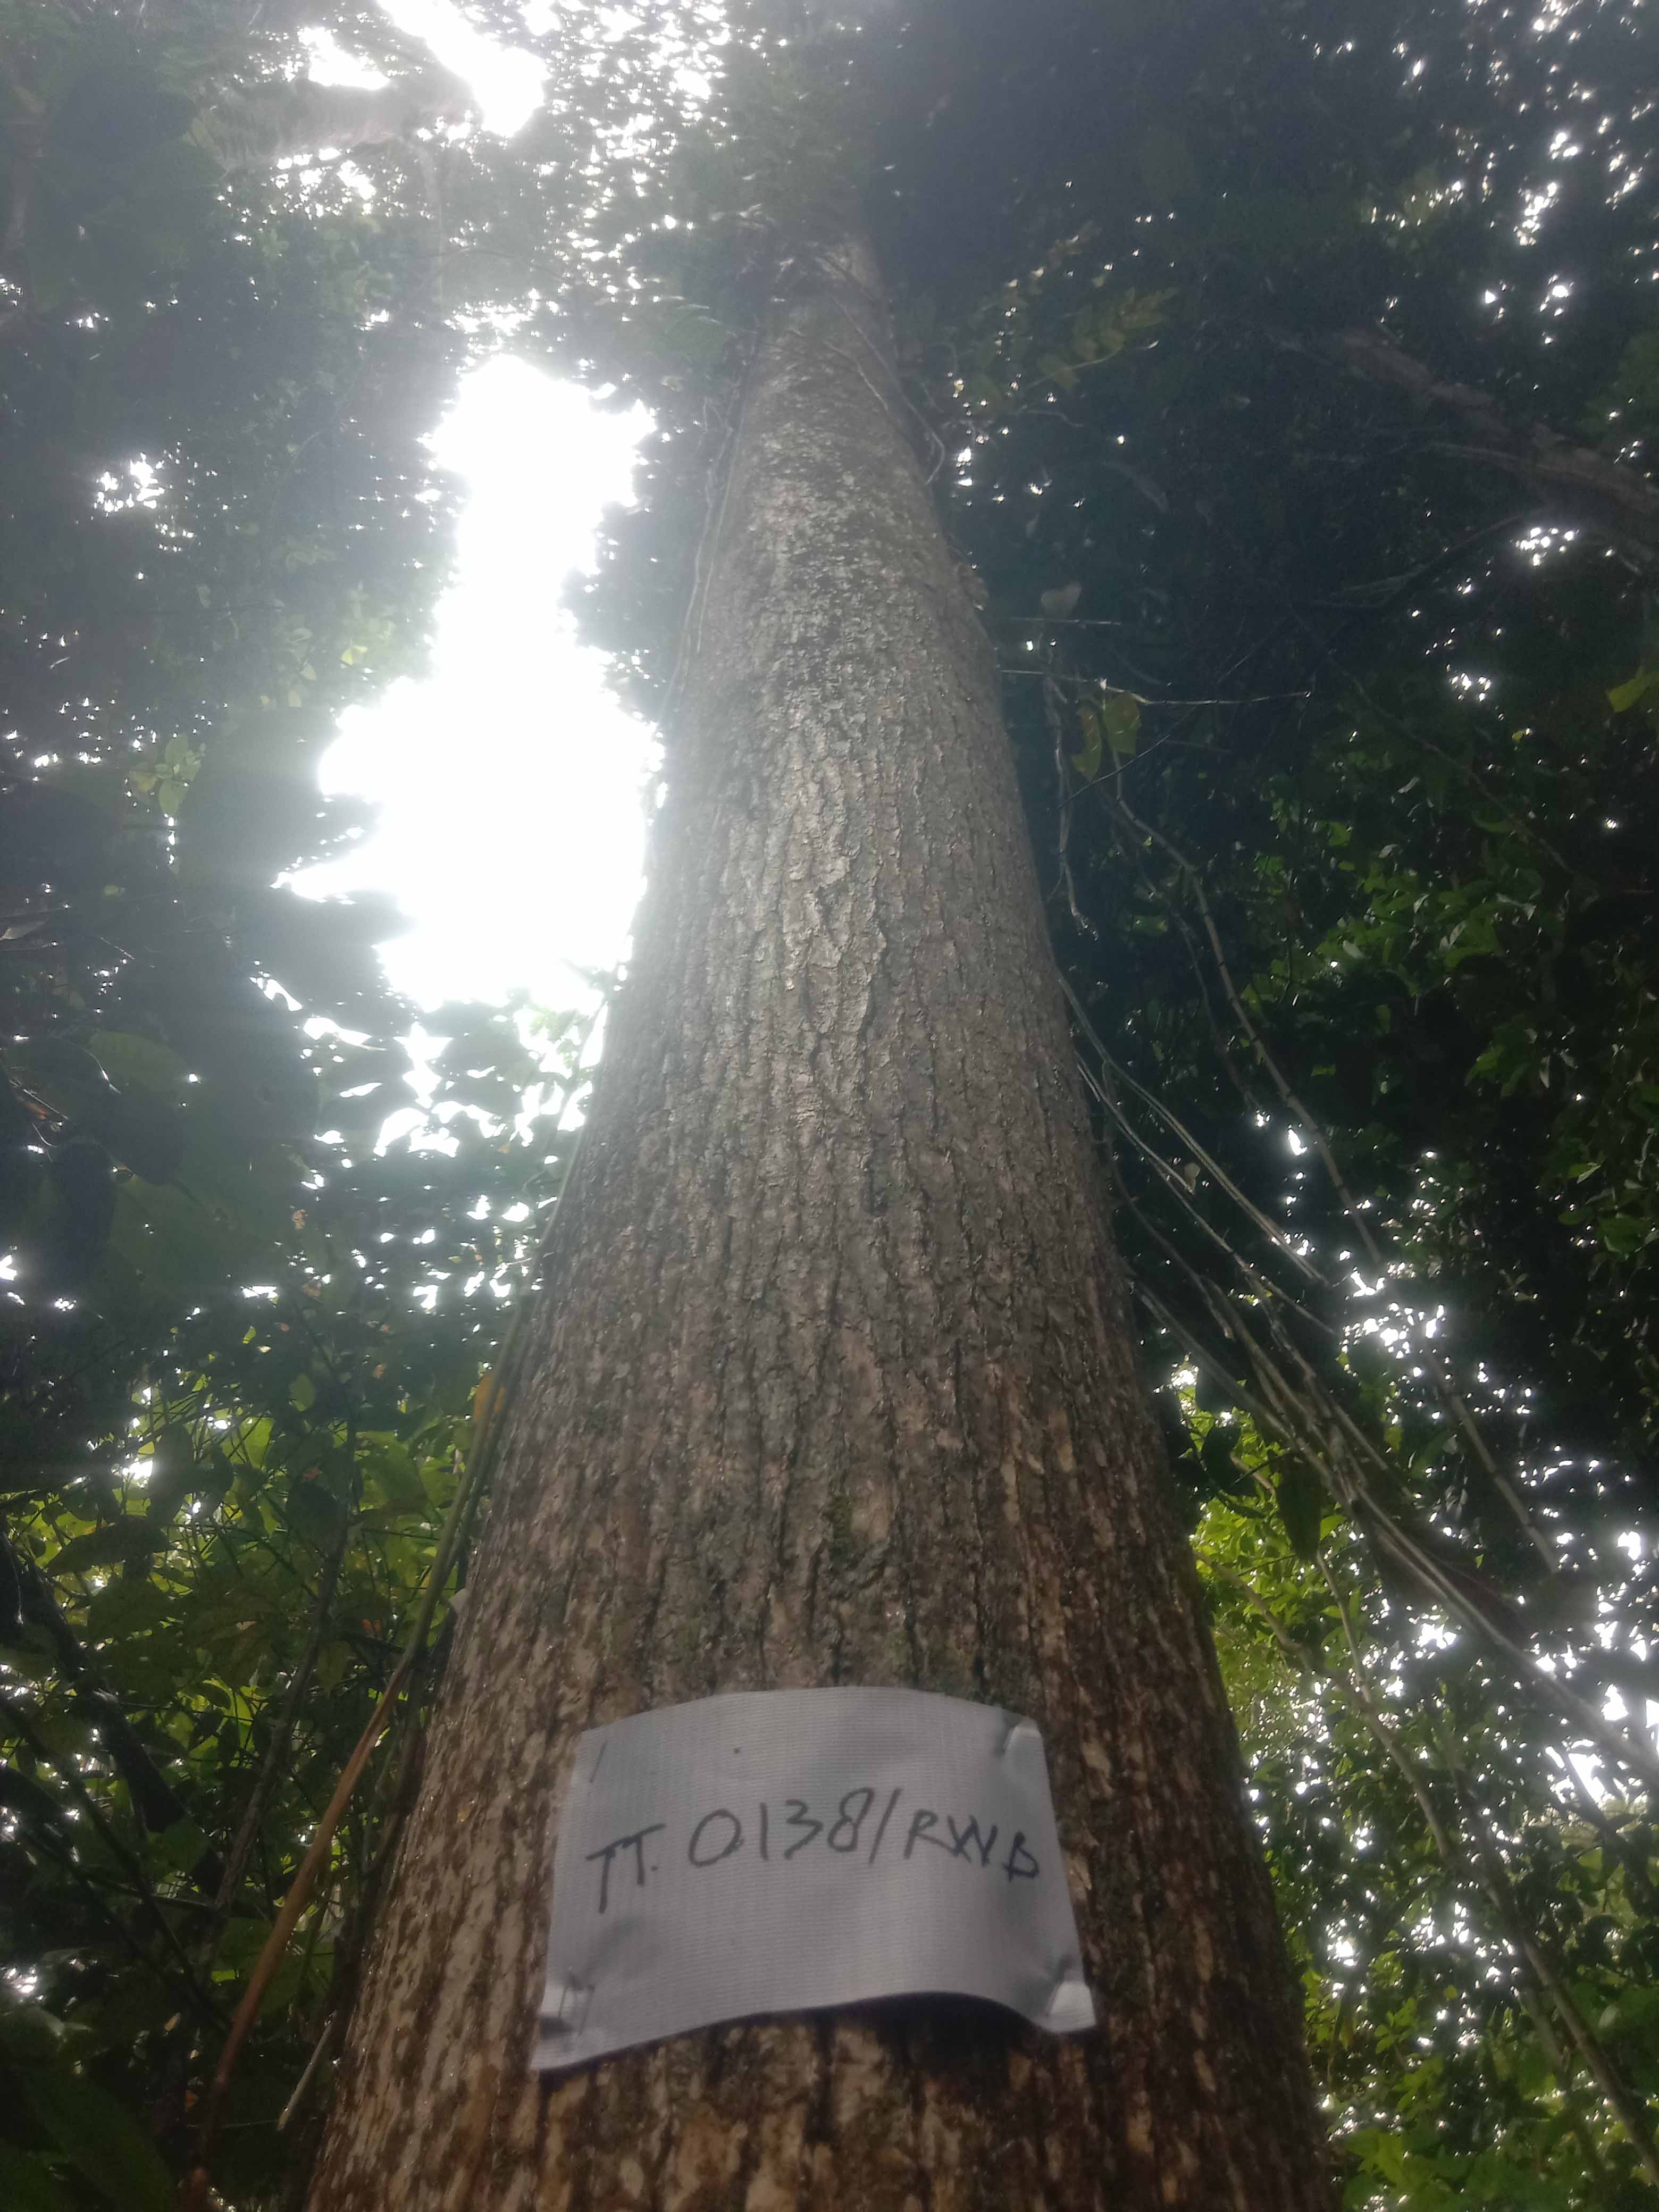 TT. 0138/RWB